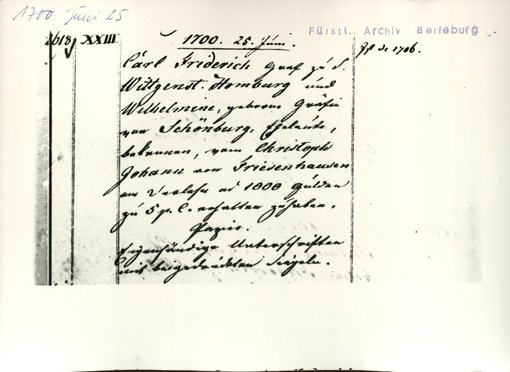 1700 Juni 25
Fürstl. Archiv Berleburg
2618 XXIII
1700. 25. Juni.
Carl Friderich Graf zu S.
Wittgenst. Homburg und
Wilhelmine, geborene Gräfin
von Schönburg, Eheleute,
bekennen, vom Christoph
Johann von Friesenhausen
ein Darlehn ad 1000 Gulden
zu 5 p. C. erhalten zu haben.
Papier.
Eigenhändige Unterschriften
mit beigedrückten Siegeln.
de 1706.